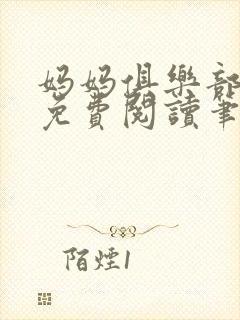 妈妈俱樂部
免費閱讀筆
陌煙1